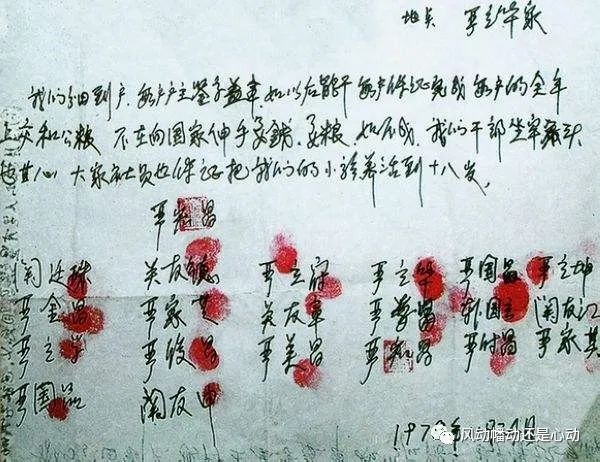 地点 严立华家
我们分田到户.每户户主签字盖章.如以后能干.每户保证完成每户的全年
上交和公粮 不在向国家伸手要钱.要粮.如不成.我们干部坐牢杀头
也甘心.大家社员也保证把我们的小孩养活到十八岁.
严宏昌
关廷珠 关友德 严立符 严立华 严国昌 严立坤
严金昌 严家芝 关友章 严学昌 韩国云 关友江
严立学 严俊昌 严美昌 严宏昌 严付昌 严家其
严国品 关友申
1978年
风动幡动还是心动